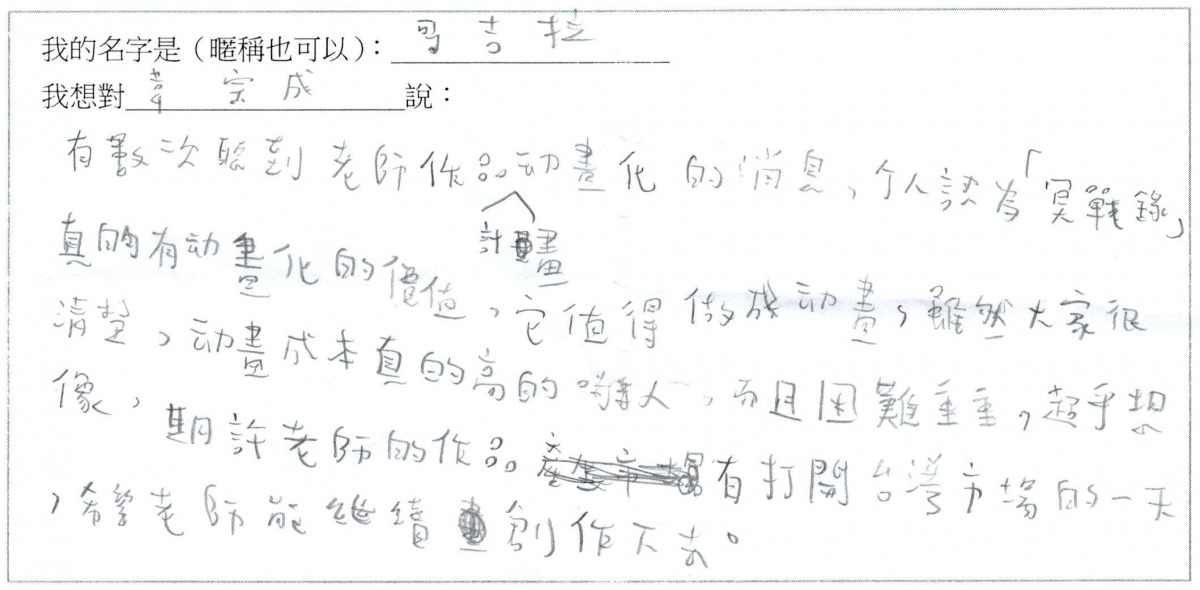 我的名字是（暱稱也可以）：哥吉拉
我想對韋宗成說：
有數次聽到老師作品动畫化的消息，个人認為「冥戰錄」
計畫
真的有动畫化的價值，它值得做成动畫，雖然大家很
清楚，动畫成本真的高的嚇人，而且困難重重，超乎想
像，期許老師的作品有打開台灣市場的一天
，希望老師能繼續創作下去。